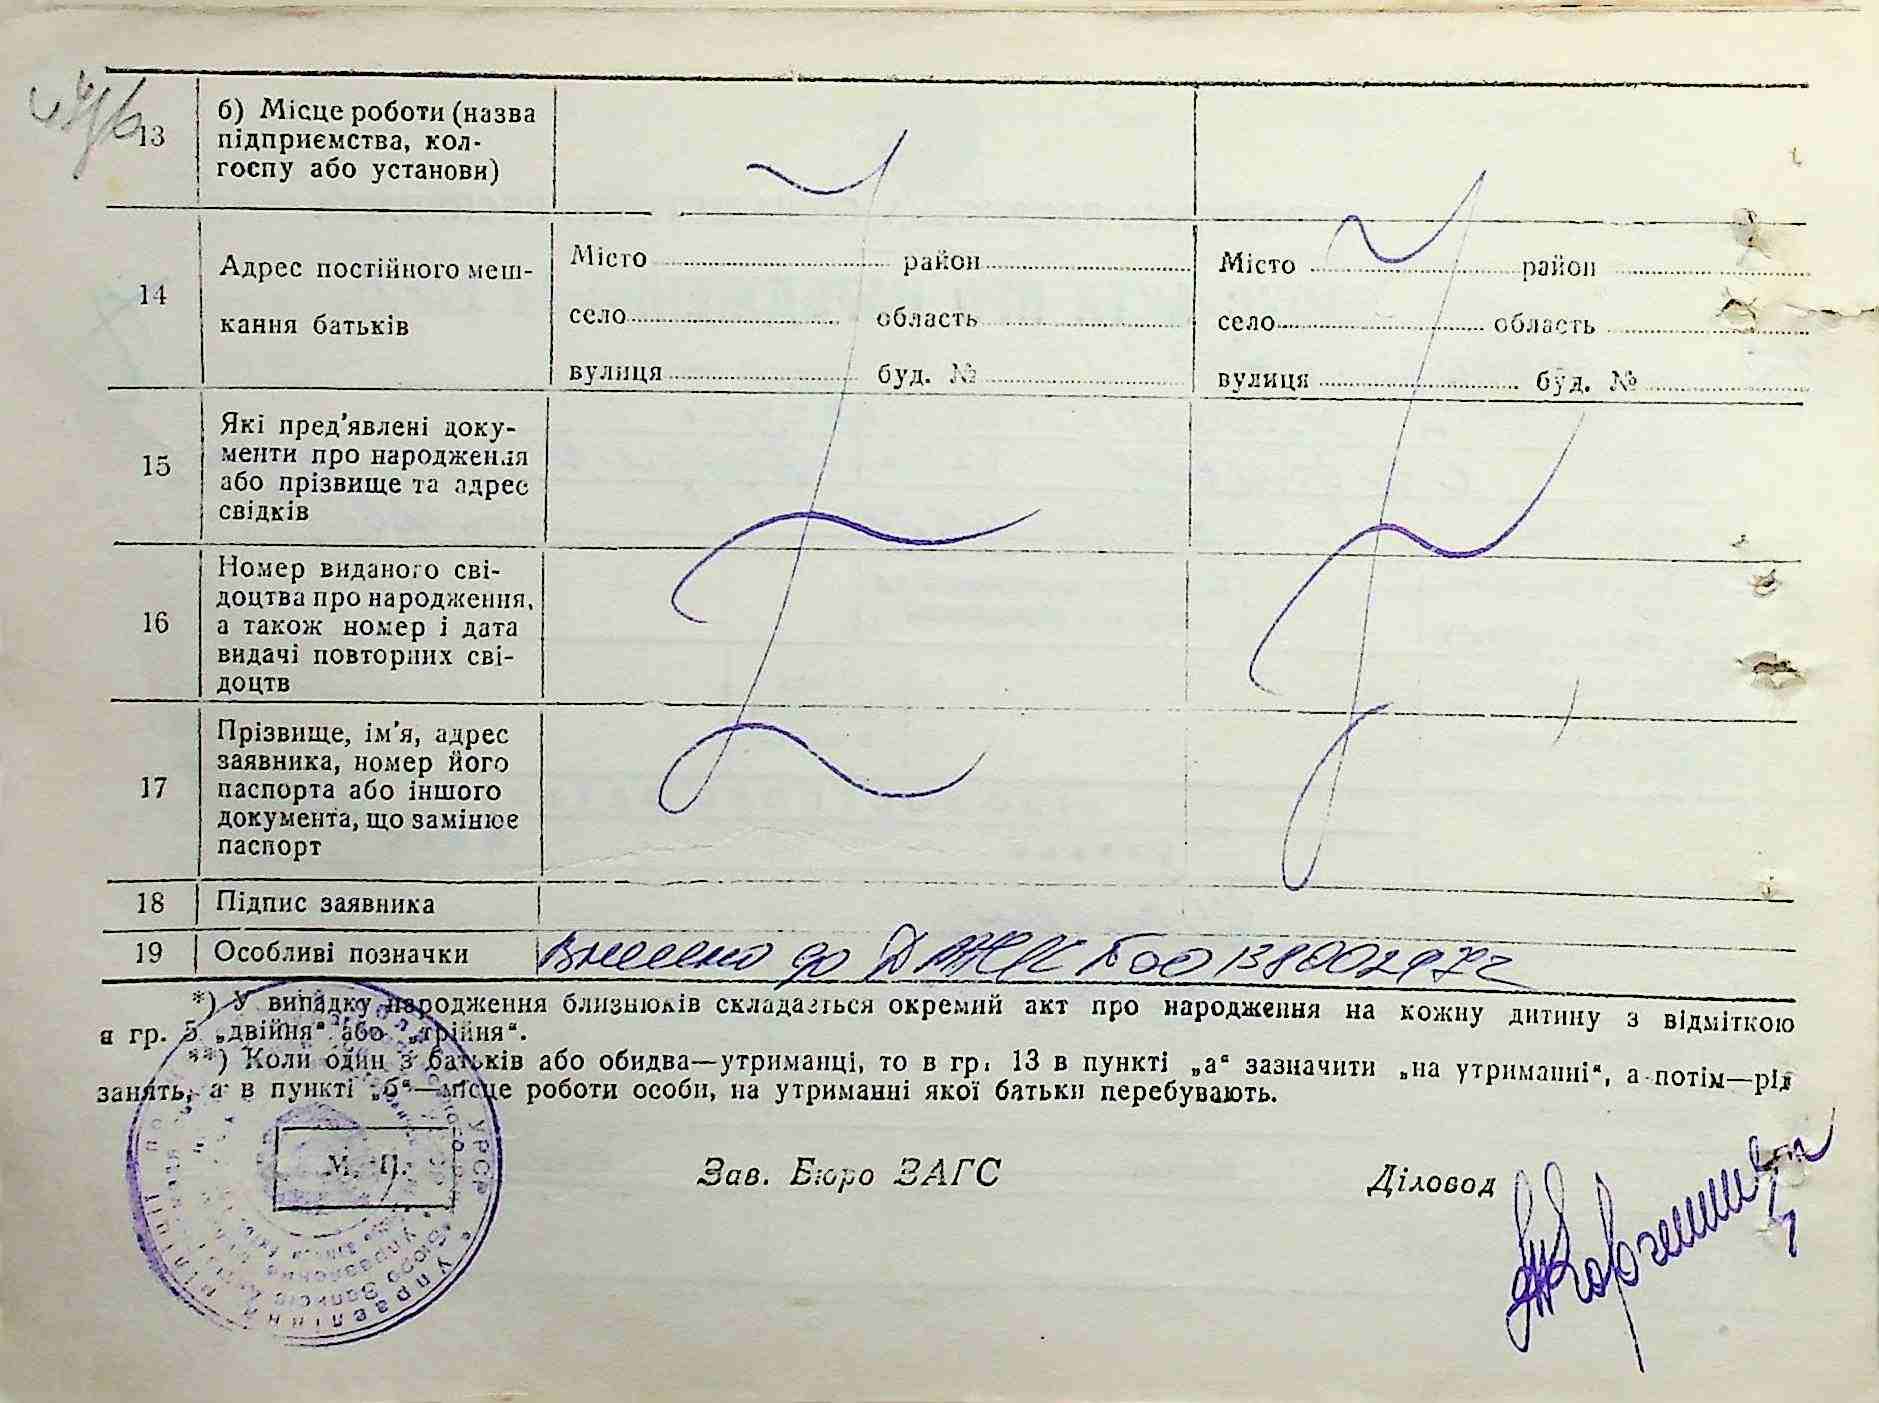 13
б) Місце роботи (назва
підприємства, кол-
госпу або установи)
14
Адрес постійного меш-
кання батьків
Місто район
село область
вулиця буд. №
Місто район
село область
вулиця буд. №
15
Які пред'явлені доку-
менти про народження
або прізвище та адрес
свідків
16
Номер виданого сві-
доцтва про народження,
а також номер і дата
видачі повторних сві-
доцтв
17
Прізвище, ім'я, адрес
заявника, номер його
паспорта або іншого
документа, що замінює
паспорт
18
Підпис заявника
19
Особливі позначки
Внесено до
*) У випадку народження близнюків складається окремий акт про народження на кожну дитину з відміткою
в гр. 5 „двійня“ або „трійня“.
**) Коли один з батьків або обидва—утриманці, то в гр. 13 в пункті „а“ зазначити „на утриманні“, а потім—рід
занять, а в пункті „б“—місце роботи особи, на утриманні якої батьки перебувають.
М. П.
Зав. Бюро ЗАГС
Діловод